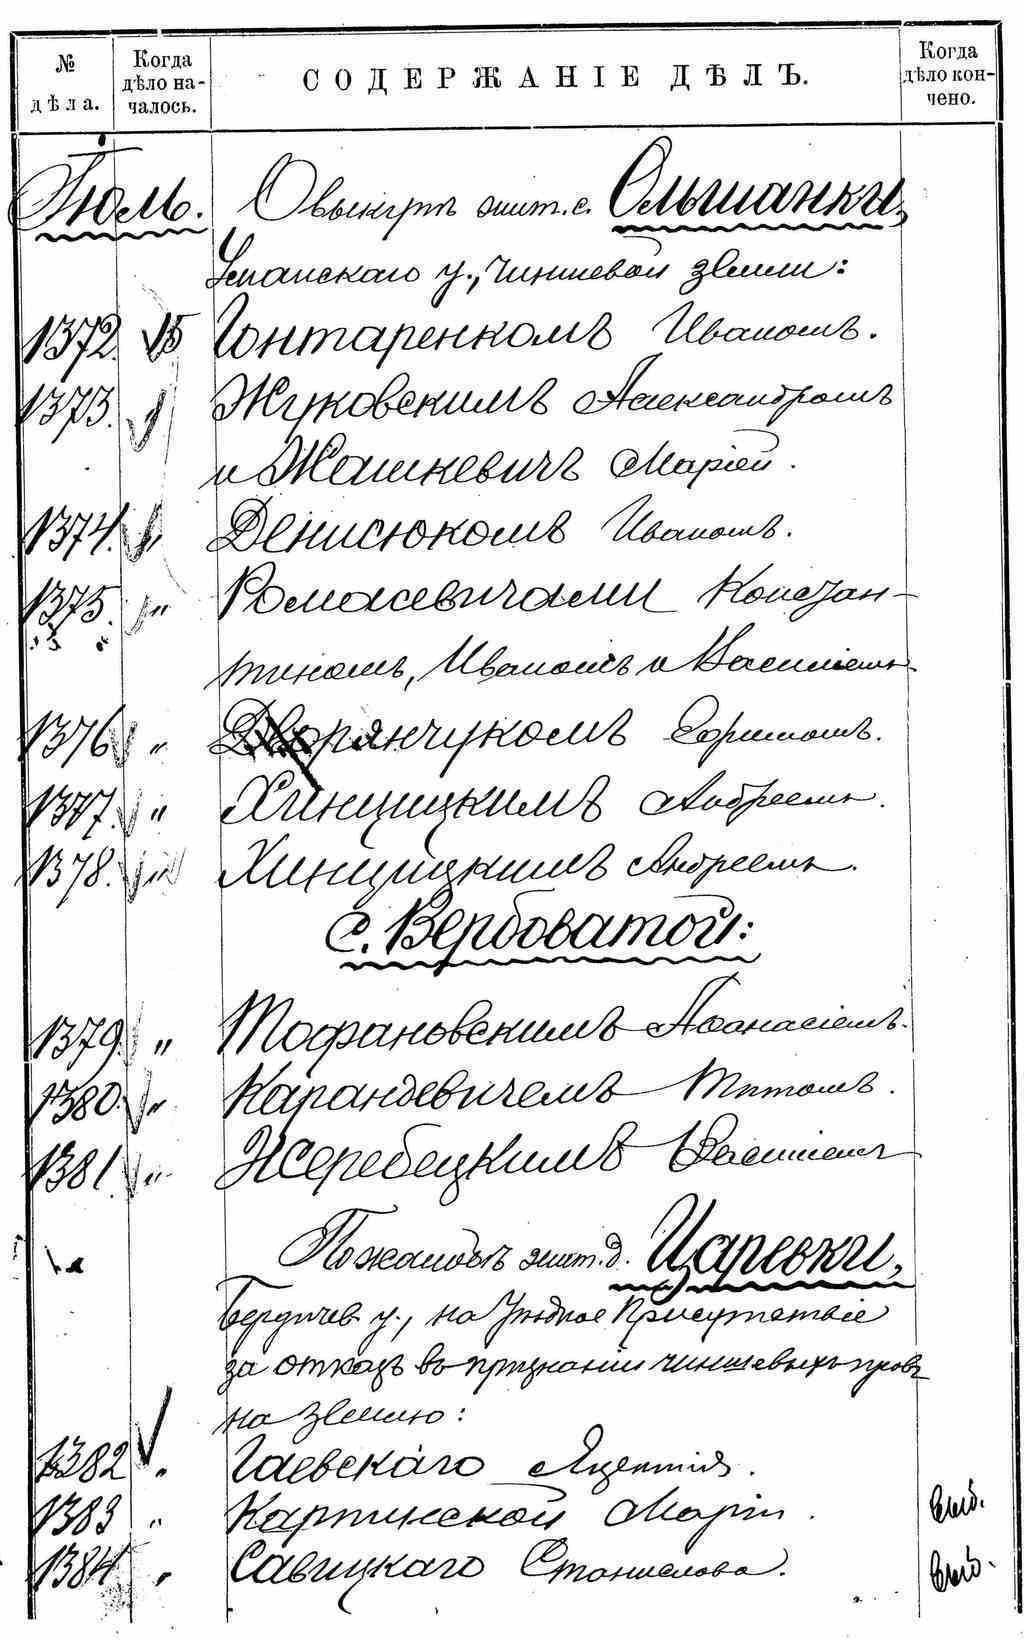 № дѣла.
Когда дѣло началось.
СОДЕРЖАНІЕ ДѢЛЪ.
Когда дѣло кончено.
Іюль.
О выкупѣ жит. с. Ольшанки,
Уманскаго у., чиншевой земли:
1372. 15 Гонтаренкомъ Иваномъ.
1373. " Жуковскимъ Александромъ
и Жашкевичъ Маріей.
1374. " Денисюкомъ Иваномъ.
1375. " Ромасевичами Констан-
тиномъ, Иваномъ и Василіемъ.
1376 " Дворянчукомъ Ефимомъ.
1377. " Хинцицкимъ Андреемъ.
1378. " Хинцицкимъ Андреемъ.
с. Вербоватой:
1379. " Тофановскимъ Афанасіемъ.
1380. " Карандевичемъ Титомъ.
1381. " Жеребецкимъ Василіемъ
По жалобѣ жит. д. Царевки,
Бердичев. у., на Уѣздное Присутствіе
за отказъ въ признаніи чиншевыхъ правъ
на землю:
1382 " Гаевскаго
1383 " Карпинской Маріи. выб.
1384 " Савицкаго Станислава. выб.